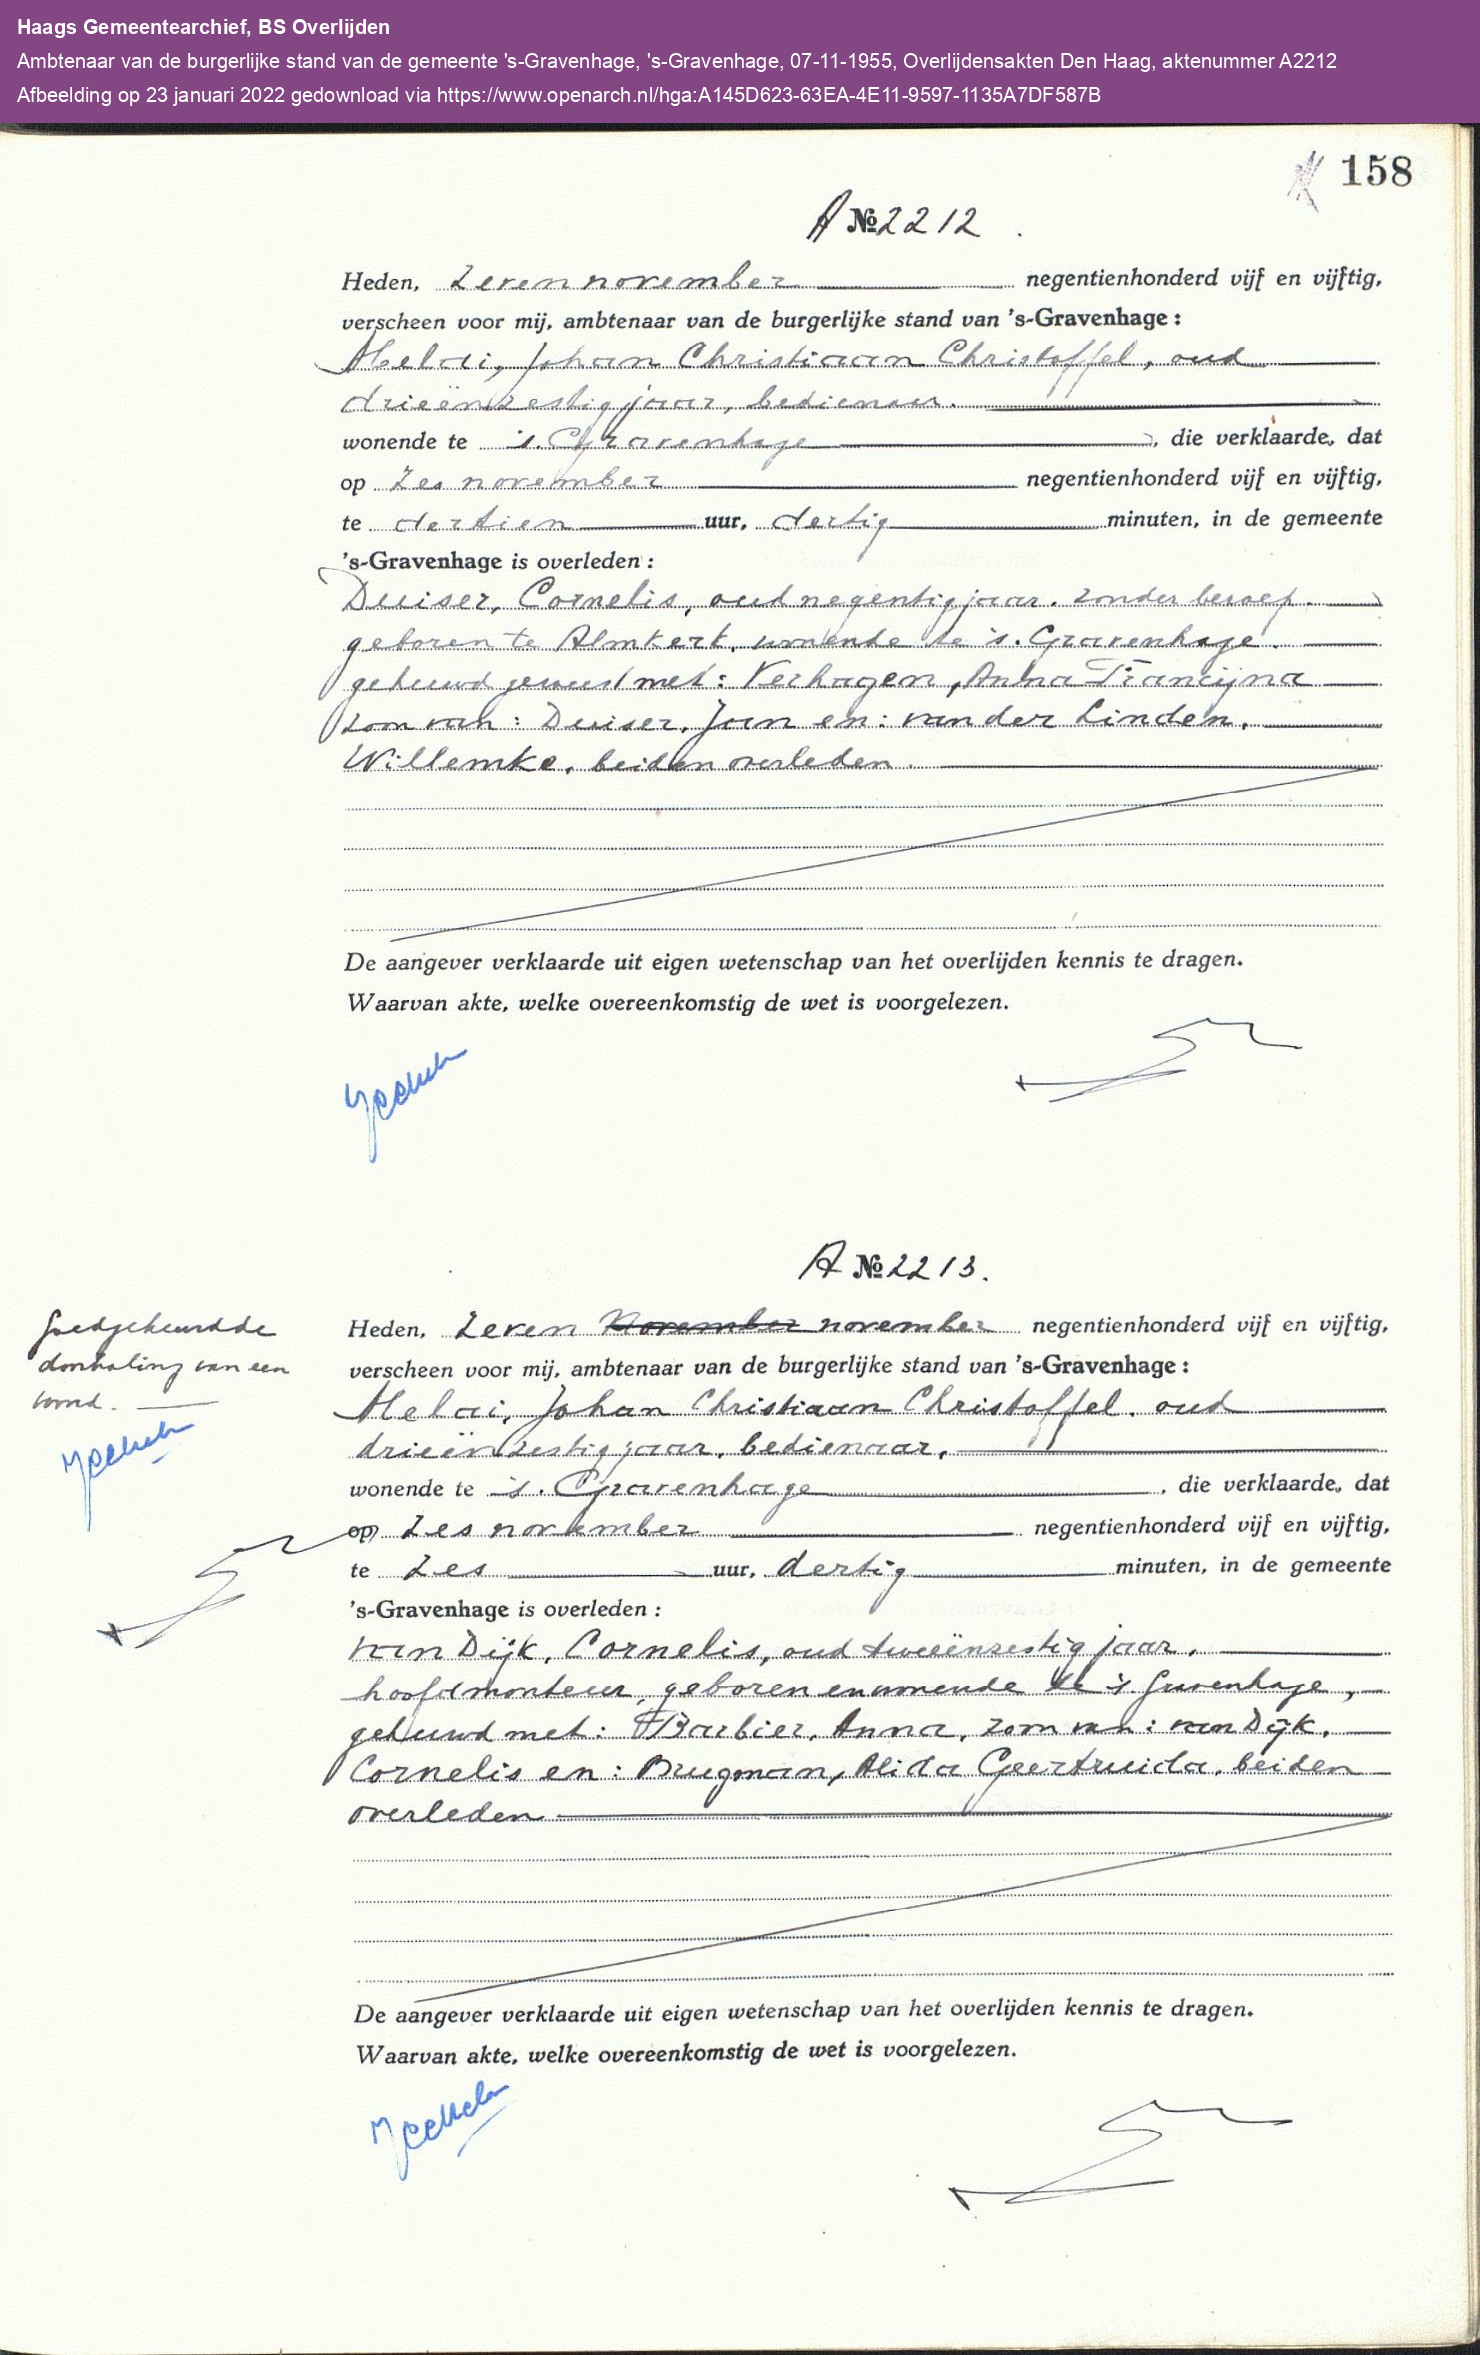 Haags Gemeentearchief, BS Overlijden
Ambtenaar van de burgerlijke stand van de gemeente 's-Gravenhage, 's-Gravenhage, 07-11-1955, Overlijdensakten Den Haag, aktenummer A2212
Afbeelding op 23 januari 2022 gedownload via https://www.openarch.nl/hga:A145D623-63EA-4E11-9597-1135A7DF587B
158
A № 2212.
Heden, zeven november negentienhonderd vijf en vijftig,
verscheen voor mij, ambtenaar van de burgerlijke stand van 's-Gravenhage:
Melai, Johan Christiaan Christoffel, oud
drieënzestig jaar, bedienaar.
wonende te 's-Gravenhage, die verklaarde, dat
op zes november negentienhonderd vijf en vijftig,
te dertien uur, dertig minuten, in de gemeente
's-Gravenhage is overleden:
Duiser, Cornelis, oud negentig jaar, zonder beroep,
geboren te Almkerk, wonende te 's-Gravenhage,
gehuwd geweest met: Verhagen, Anna Francijna
zoon van: Duiser, Jan en: van der Linden,
Willemke, beiden overleden.
De aangever verklaarde uit eigen wetenschap van het overlijden kennis te dragen.
Waarvan akte, welke overeenkomstig de wet is voorgelezen.
A № 2213.
Goedgekeurd de
doorhaling van een
woord.
Heden, zeven November november negentienhonderd vijf en vijftig,
verscheen voor mij, ambtenaar van de burgerlijke stand van 's-Gravenhage:
Melai, Johan Christiaan Christoffel, oud
drieënzestig jaar, bedienaar,
wonende te 's-Gravenhage, die verklaarde, dat
op zes november negentienhonderd vijf en vijftig,
te zes uur, dertig minuten, in de gemeente
's-Gravenhage is overleden:
van Dijk, Cornelis, oud tweeënzestig jaar,
hoofdmonteur, geboren en wonende te 's-Gravenhage,
gehuwd met: Barbier, Anna, zoon van: van Dijk,
Cornelis en: Brugman, Alida Geertruida, beiden
overleden
De aangever verklaarde uit eigen wetenschap van het overlijden kennis te dragen.
Waarvan akte, welke overeenkomstig de wet is voorgelezen.